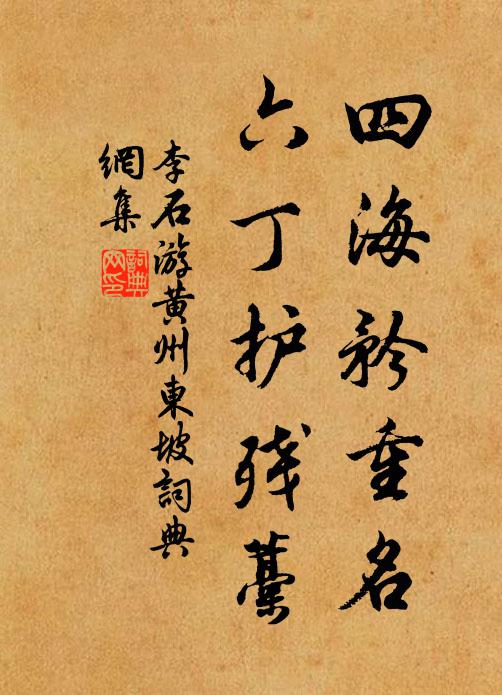 四海矜重名
六丁护残藁
李石游黄州東坡詞典
網集
詞典
网印